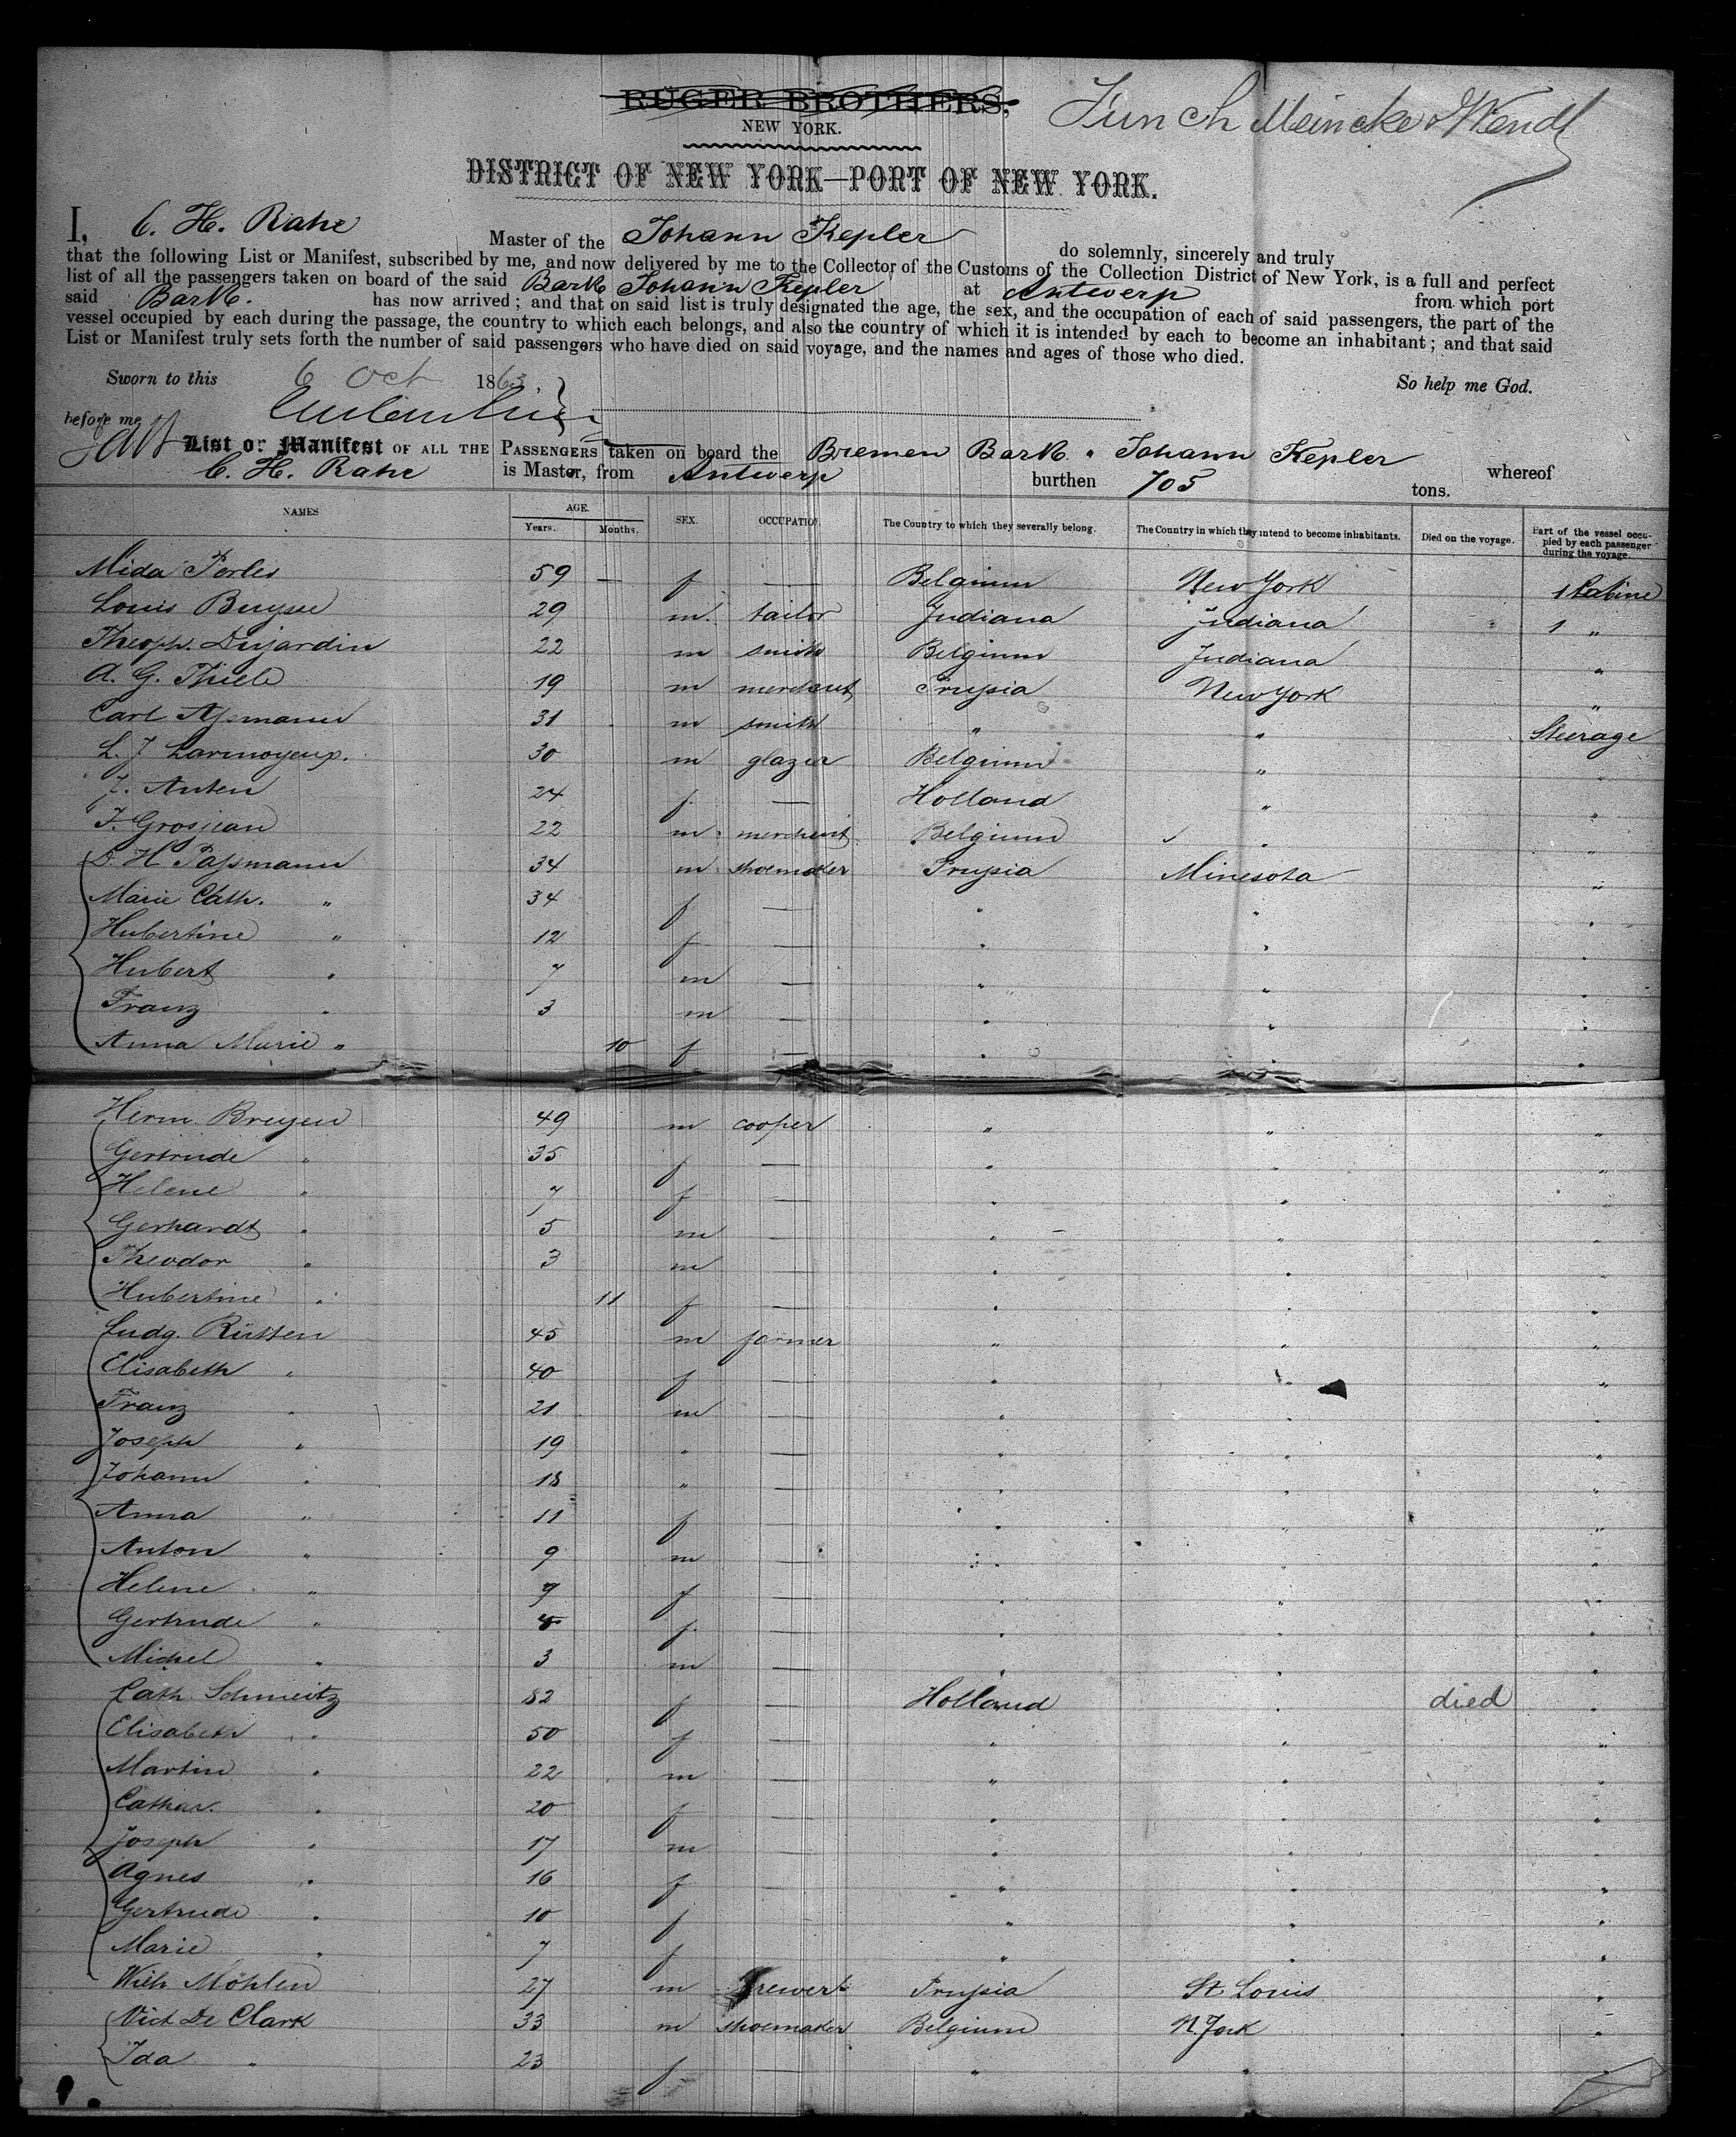 RÜGER BROTHERS,
Funch Meincke & Wendt
NEW YORK.
DISTRICT OF NEW YORK—PORT OF NEW YORK.
I, C. H. Rahe Master of the Johann Kepler do solemnly, sincerely and truly
that the following List or Manifest, subscribed by me, and now delivered by me to the Collector of the Customs of the Collection District of New York, is a full and perfect
list of all the passengers taken on board of the said Bark Johann Kepler at Antwerp from which port
said Bark. has now arrived; and that on said list is truly designated the age, the sex, and the occupation of each of said passengers, the part of the
vessel occupied by each during the passage, the country to which each belongs, and also the country of which it is intended by each to become an inhabitant; and that said
List or Manifest truly sets forth the number of said passengers who have died on said voyage, and the names and ages of those who died.
Sworn to this 6 Oct 1863. So help me God.
before me
List or Manifest OF ALL THE PASSENGERS taken on board the Bremen Bark " Johann Kepler whereof
C. H. Rahe is Master, from Antwerp burthen 705 tons.
NAMES AGE. Years. Months. SEX. OCCUPATION. The Country to which they severally belong. The Country in which they intend to become inhabitants. Died on the voyage. Part of the vessel occupied by each passenger during the voyage.
Mida 59 — f — Belgium New York 1 Cabine
Louis Buysse 29 m. tailor Indiana Indiana 1 "
Theoph. Dujardin 22 m smith Belgium Indiana "
A. G. Thiele 19 m merchant Prussia New York "
Carl Assmann 31 m smith " " Steerage
L. J. Larmoyeux. 30 m glazer Belgium " "
J. Anten 24 f. — Holland " "
J. Grosjean 22 m. merchent Belgium " "
D. H. Passmann 34 m shoemaker Prussia Minesota "
Marie Cath. " 34 f — " " "
Hubertine " 12 f — " " "
Hubert " 7 m — " " "
Franz " 3 m — " " "
Anna Marie " 10 f — " " "
Herm. Breyen 49 m cooper " " "
Gertrude " 35 f — " " "
Helene " 7 f — " " "
Gerhardt " 5 m — " " "
Theodor " 3 m — " " "
Hubertine " 11 f — " " "
Ludg. Rütten 45 m farmer " " "
Elisabeth " 40 f — " " "
Franz " 21 m — " " "
Joseph " 19 " — " " "
Johann " 18 " — " " "
Anna " 11 f — " " "
Anton " 9 m — " " "
Helene " 7 f — " " "
Gertrude " f. — " " "
Michel " 3 m — " " "
Cath. Schmeitz 82 f — Holland " died "
Elisabeth " 50 f — " " "
Martin " 22 m — " " "
Cathar. " 20 f — " " "
Joseph " 17 m — " " "
Agnes " 16 f — " " "
Gertrude " 10 f — " " "
Marie " 7 f — " " "
Wilh Möhlen 27 m brewer Prussia St Louis "
Vict De Clark 33 m shoemaker Belgium N. York "
Ida " 23 f — " " "